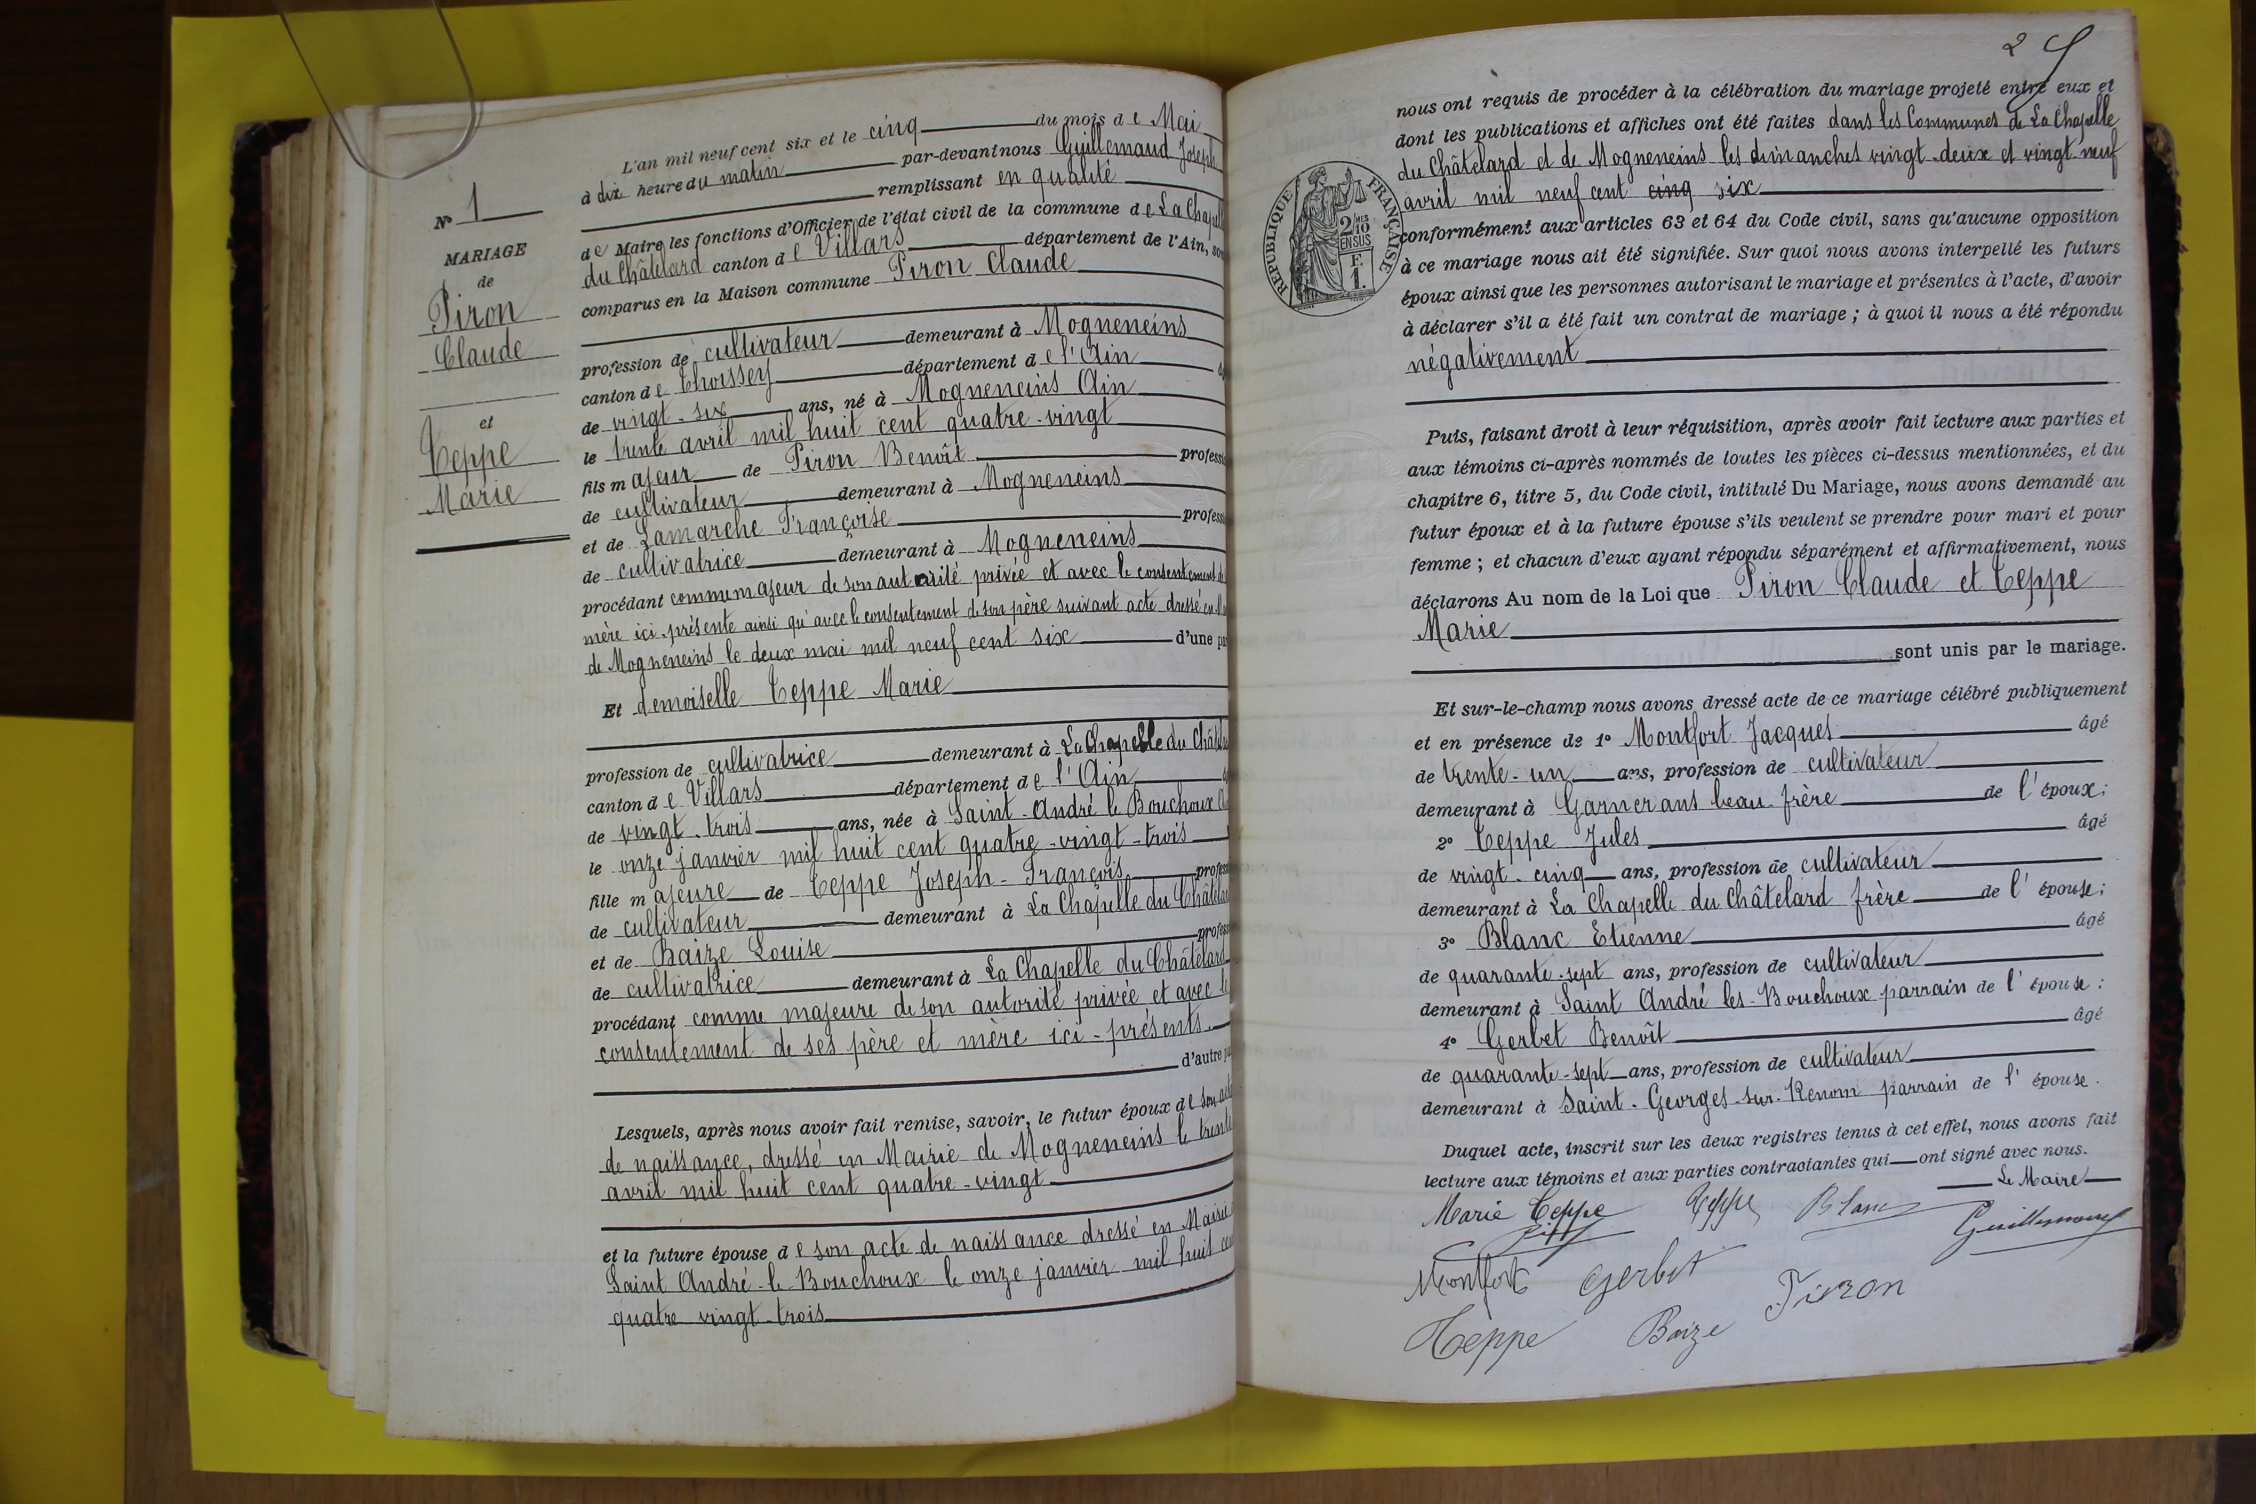 L'an mil neuf cent six et le cinq du mois de Mai
à dix heure du matin par-devant nous Guillemaud Joseph
remplissant en qualité
de Maire les fonctions d'Officier de l'état civil de la commune de La Chapelle
du Châtelard canton de Villars département de l'Ain, sont
comparus en la Maison commune Piron Claude
profession de cultivateur demeurant à Mogneneins
canton de Thoissey département de l'Ain
de vingt-six ans, né à Mogneneins Ain
le trente avril mil huit cent quatre-vingt
fils majeur de Piron Benoît profess
de cultivateur demeurant à Mogneneins
et de Lamarche Françoise profess
de cultivatrice demeurant à Mogneneins
procédant comme majeur de son autorité privée et avec le consentement de
mère ici présente ainsi qu'avec le consentement de son père suivant acte dressé en
de Mogneneins le deux mai mil neuf cent six d'une pa
Et demoiselle Teppe Marie
profession de cultivatrice demeurant à La Chapelle du Châtel
canton de Villars département de l'Ain
de vingt-trois ans, née à Saint-André le Bouchoux
le onze janvier mil huit cent quatre-vingt-trois
fille majeure de Teppe Joseph-François profess
de cultivateur demeurant à La Chapelle du Châtelar
et de Baize Louise profess
de cultivatrice demeurant à La Chapelle du Châtelard
procédant comme majeure de son autorité privée et avec le
consentement de ses père et mère ici-présents.
d'autre pa
Lesquels, après nous avoir fait remise, savoir, le futur époux de son acte
de naissance, dressé en Mairie de Mogneneins le trente
avril mil huit cent quatre-vingt
et la future épouse de son acte de naissance dressé en Mairie
Saint André-le Bouchoux le onze janvier mil huit cen
quatre vingt-trois
No 1
MARIAGE
de
Piron
Claude
et
Teppe
Marie
2
nous ont requis de procéder à la célébration du mariage projeté entre eux et
dont les publications et affiches ont été faites dans les Communes de La Chapelle
du Châtelard et de Mogneneins les dimanches vingt-deux et vingt neuf
avril mil neuf cent cinq six
conformément aux articles 63 et 64 du Code civil, sans qu'aucune opposition
à ce mariage nous ait été signifiée. Sur quoi nous avons interpellé les futurs
époux ainsi que les personnes autorisant le mariage et présentes à l'acte, d'avoir
à déclarer s'il a été fait un contrat de mariage ; à quoi il nous a été répondu
négativement
Puis, faisant droit à leur réquisition, après avoir fait lecture aux parties et
aux témoins ci-après nommés de toutes les pièces ci-dessus mentionnées, et du
chapitre 6, titre 5, du Code civil, intitulé Du Mariage, nous avons demandé au
futur époux et à la future épouse s'ils veulent se prendre pour mari et pour
femme ; et chacun d'eux ayant répondu séparément et affirmativement, nous
déclarons Au nom de la Loi que Piron Claude et Teppe
Marie
sont unis par le mariage.
Et sur-le-champ nous avons dressé acte de ce mariage célébré publiquement
et en présence de 1o Montfort Jacques âgé
de trente-un ans, profession de cultivateur
demeurant à Garnerans beau-frère de l'époux;
2o Teppe Jules âgé
de vingt-cinq ans, profession de cultivateur
demeurant à La Chapelle du Châtelard frère de l'épouse;
3o Blanc Etienne âgé
de quarante-sept ans, profession de cultivateur
demeurant à Saint André les-Bouchoux parrain de l'épouse;
4o Gerbet Benoît âgé
de quarante-sept ans, profession de cultivateur
demeurant à Saint-Georges-sur-Renom parrain de l'épouse.
Duquel acte, inscrit sur les deux registres tenus à cet effet, nous avons fait
lecture aux témoins et aux parties contractantes qui ont signé avec nous.
Le Maire
Marie Teppe Teppe Blanc Guillemaud
Montfort Gerbet Piron
Teppe Baize
REPUBLIQUE FRANÇAISE
2/10
EN SUS
F.
1.